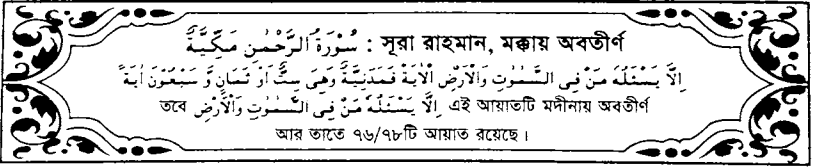 سُوْرَةُ الرَّحْمٰنِ مَكِّيَّةٌ : সূরা রাহমান, মক্কায় অবতীর্ণ
اِلَّا يَسْئَلُهُ مَنْ فِى السَّمٰوٰتِ وَالْاَرْضِ الْاٰيَةَ فَمَدَنِيَّةٌ وَهِىَ سِتٌّ اَوْ ثَمَانٍ وَّ سَبْعُوْنَ اٰيَةً
তবে اِلَّا يَسْئَلُهُ مَنْ فِى السَّمٰوٰتِ وَالْاَرْضِ এই আয়াতটি মদীনায় অবতীর্ণ
আর তাতে ৭৬/৭৮টি আয়াত রয়েছে।